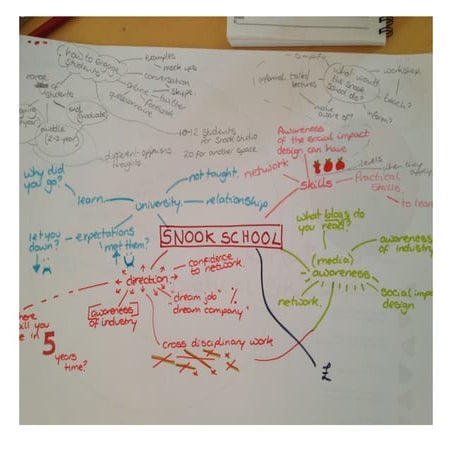 how to engage
students
examples
mock ups
conversation
skype
online
twitter
facebook
questionnaire
students
graduate
middle
(2-3 year)
simplify
informal talks/
lectures
what would
the snook
school do?
workshop
teach?
inform?
make
aware of?
10-12 students
for Snook studio
20 for another space
different opinions
thoughts
Awareness
of the social impact
design can have
why did
you go?
learn
not taught.
network
university
relationships
skills
levels
when they apply
Practical
Skills.
to learn
let you
down?
expectations
met them?
SNOOK SCHOOL
What blogs do
you read?
(media)
awareness
awareness
of industry
network.
social impact
design
confidence
to network.
direction
"dream job"
"dream company"
awareness
of industry
cross disciplinary work
5
years
time?
£